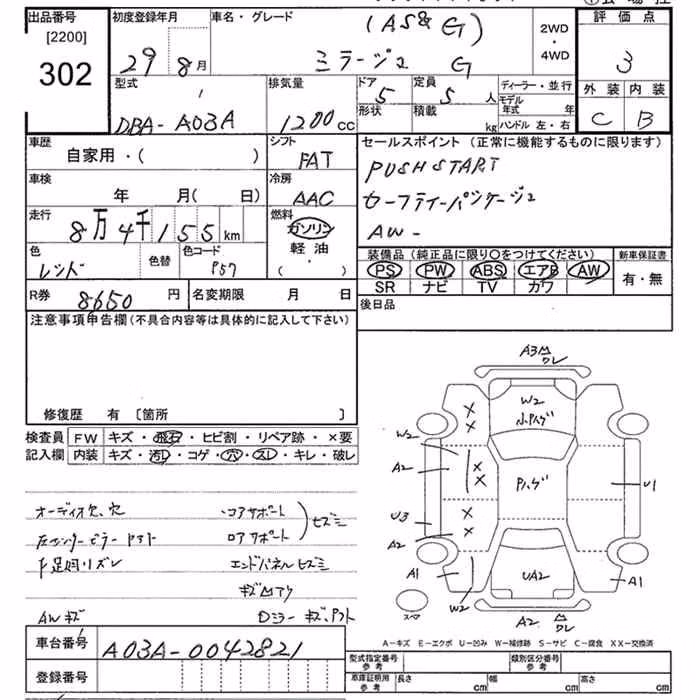 出品番号
[2200]
302
初度登録年月
29 8月
車名・グレード
(AS& G)
ミラージュ G
2WD
・
4WD
評価点
3
外装 内装
C B
型式
DBA-A03A
排気量
1200cc
ドア 5
形状
定員 5 人
積載 kg
ディーラー・並行
モデル年式 年
ハンドル 左・右
車歴
自家用・( )
シフト
FAT
車検
年 月( 日)
冷房
AAC
走行
8万4千155km
燃料
ガソリン
軽油
・
( )
色
レッド
色替
色コード
P57
R券 8650円
名変期限 月 日
セールスポイント (正常に機能するものに限ります)
PUSH START
セーフティーパッケージ
AW-
装備品 (純正品に限り〇をつけてください)
PS PW ABS エアB AW
SR ナビ TV カワ
新車保証書
有・無
後日品
注意事項申告欄(不具合内容等は具体的に記入して下さい)
修復歴 有 [箇所 ]
検査員
記入欄
FW キズ・飛石・ヒビ割・リペア跡・×要
内装 キズ・汚レ・コゲ・穴・スレ・キレ・破レ
オーディオ欠、穴
コアサポート
ロアサポート
ズミ
エンドパネル
AWキズ
Dミラー キズ、
A3
ワレ
W2
W2
A2
U3
A2
A1
W2
U1
A1
UA2
A2
ワレ
スペア
A-キズ E-エクボ U-凹み W-補修跡 S-サビ C-腐食 XX-交換済
車台番号
A03A-0042821
登録番号
型式指定番号
参考
類別区分番号
参考
車庫証明用
参考
長さ cm
幅 cm
高さ cm